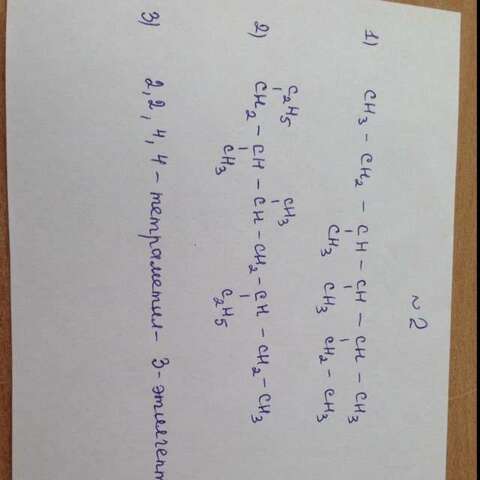 №2
1) CH3 - CH2 - CH - CH - CH - CH3
CH3 CH3 CH2 - CH3
2) C2H5 CH3
CH2 - CH - CH - CH2 - CH - CH2 - CH3
CH3 C2H5
3) 2,2,4,4 - тетраметил - 3 - этилгепт